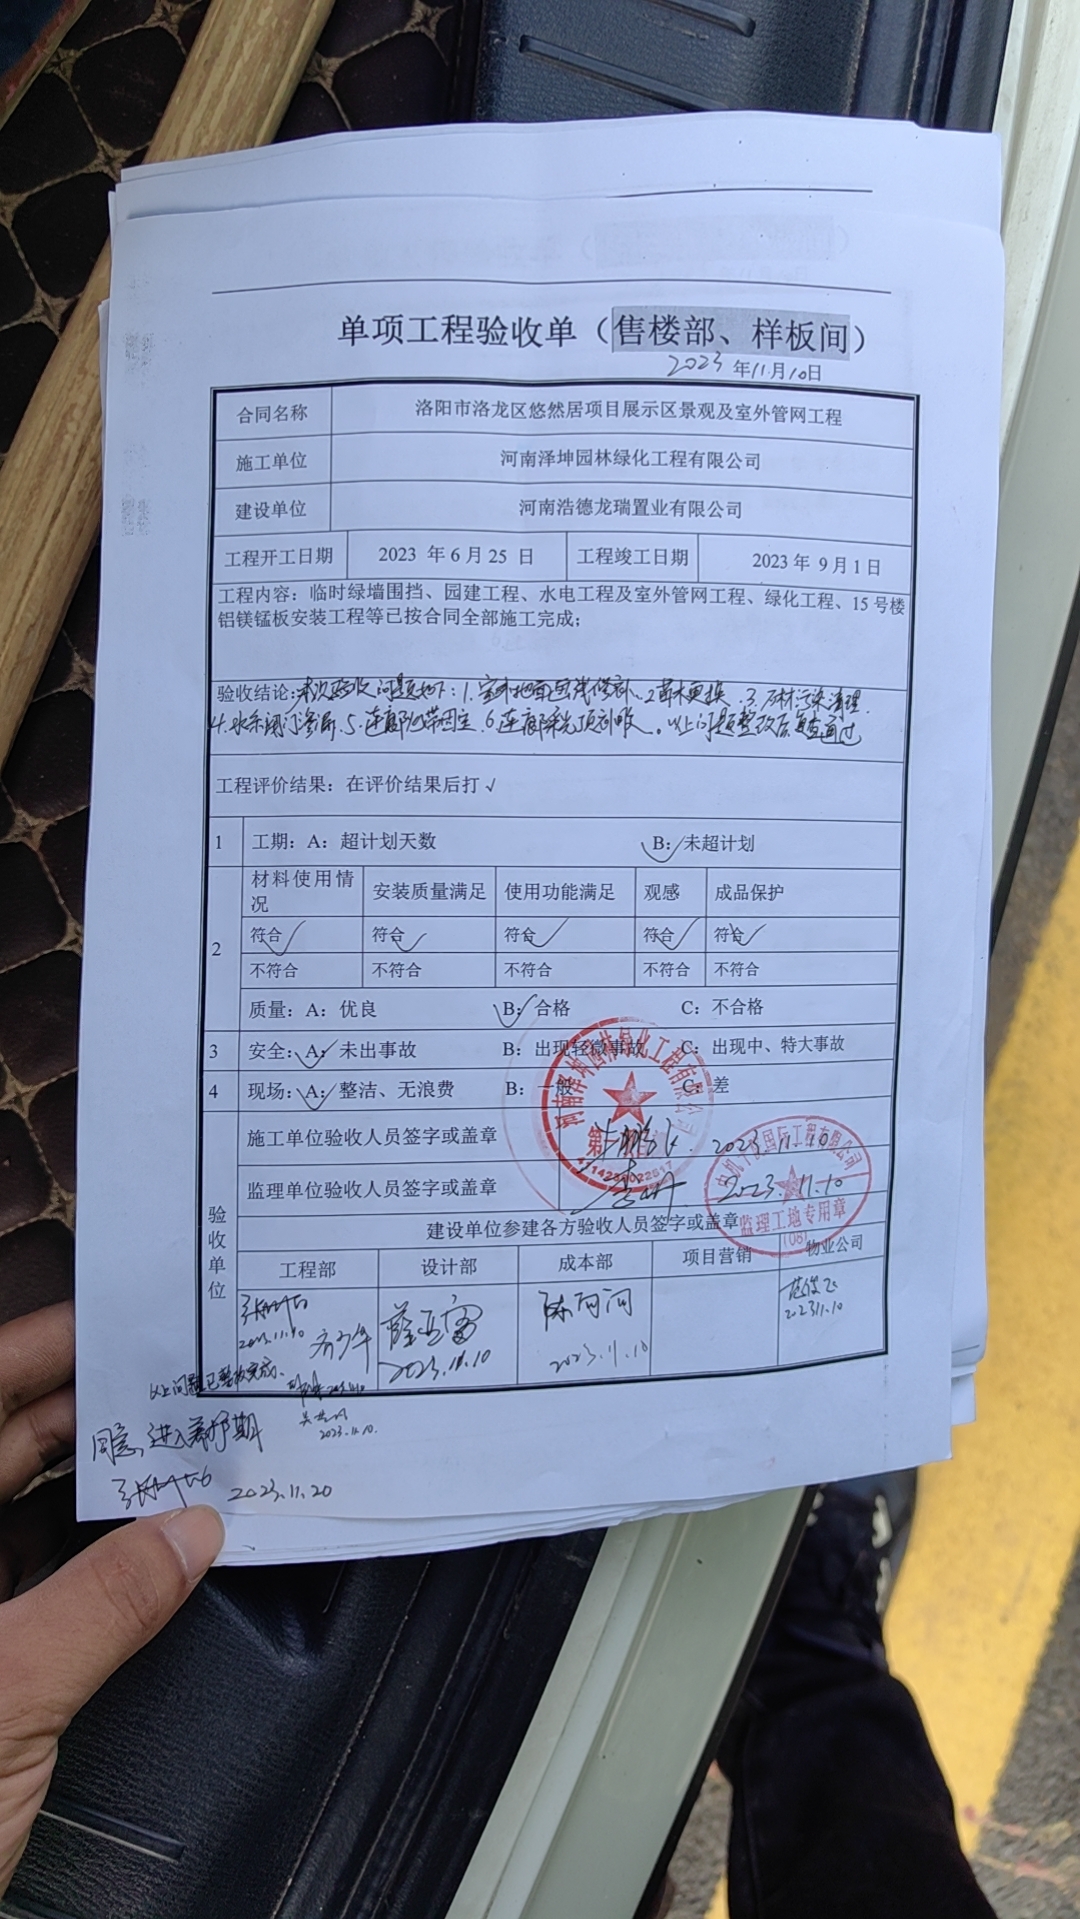 单项工程验收单（售楼部、样板间）
2023年11月10日
合同名称 洛阳市洛龙区悠然居项目展示区景观及室外管网工程
施工单位 河南泽坤园林绿化工程有限公司
建设单位 河南浩德龙瑞置业有限公司
工程开工日期 2023 年 6 月 25 日 工程竣工日期 2023 年 9 月 1 日
工程内容：临时绿墙围挡、园建工程、水电工程及室外管网工程、绿化工程、15 号楼
铝镁锰板安装工程等已按合同全部施工完成；
验收结论：本次验收问题如下：1. 修补、2.苗木更换、3.石材污染清理
4.水系阀门渗漏、5.连廊 6.连廊采光顶 。以上问题整改后复查通过
工程评价结果：在评价结果后打√
1 工期：A：超计划天数 B：未超计划
材料使用情况 安装质量满足 使用功能满足 观感 成品保护
2 符合 符合 符合 符合 符合
不符合 不符合 不符合 不符合 不符合
质量：A：优良 B：合格 C：不合格
3 安全：A：未出事故 B：出现轻微事故 C：出现中、特大事故
4 现场：A：整洁、无浪费 B：一般 C：差
验收单位
施工单位验收人员签字或盖章 2023.11.10
河南泽坤园林绿化工程有限公司
监理单位验收人员签字或盖章 2023.11.10
国际工程有限公司
监理工地专用章
(08)
建设单位参建各方验收人员签字或盖章
工程部 设计部 成本部 项目营销 物业公司
2023.11.10 2023.11.10 2023.11.10 2023.11.10
以上问题已整改完成、 2023.11.10
2023.11.10.
同意，进入养护期
2023.11.20